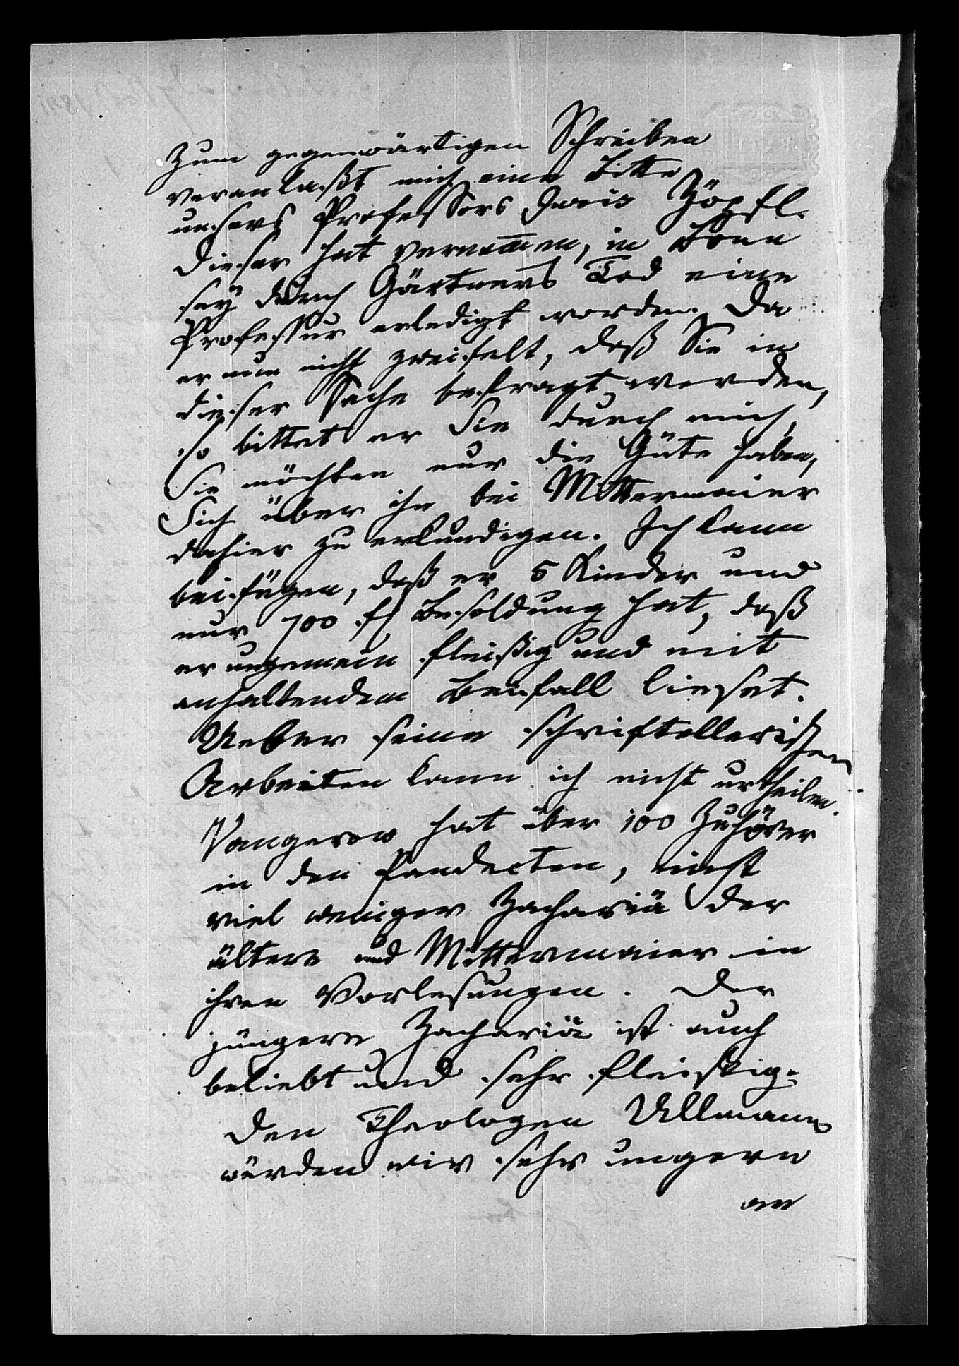 Zum gegenwärtigen Schreiben
veranlaßt mich eine Bitte
unsers Professors Juris Zöpfl.
Dieser hat vernommen, in Bonn
sey durch Gärtners Tod eine
Professur erledigt worden. Da
er nun nicht zweifelt, daß Sie in
dieser Sache befragt werden,
so bittet er Sie durch mich,
Sie möchten nur die Güte haben,
Sich über ihn bei Mittermaier
dahier zu erkundigen. Ich kann
beifügen, daß er 5 Kinder und
nur 700 fl Besoldung hat, daß
er ungemein fleißig und mit
anhaltendem Beifall lieset.
Ueber seine schriftellerischen
Arbeiten kann ich nicht urtheilen.
Vangerow hat über 100 Zuhörer
in den Pandecten, nicht
viel weniger Zachariä der
ältere und Mittermaier in
ihren Vorlesungen. Der
jüngere Zachariä ist auch
beliebt und sehr fleißig.
Den Theologen Ullmann
würden wir sehr ungern
an